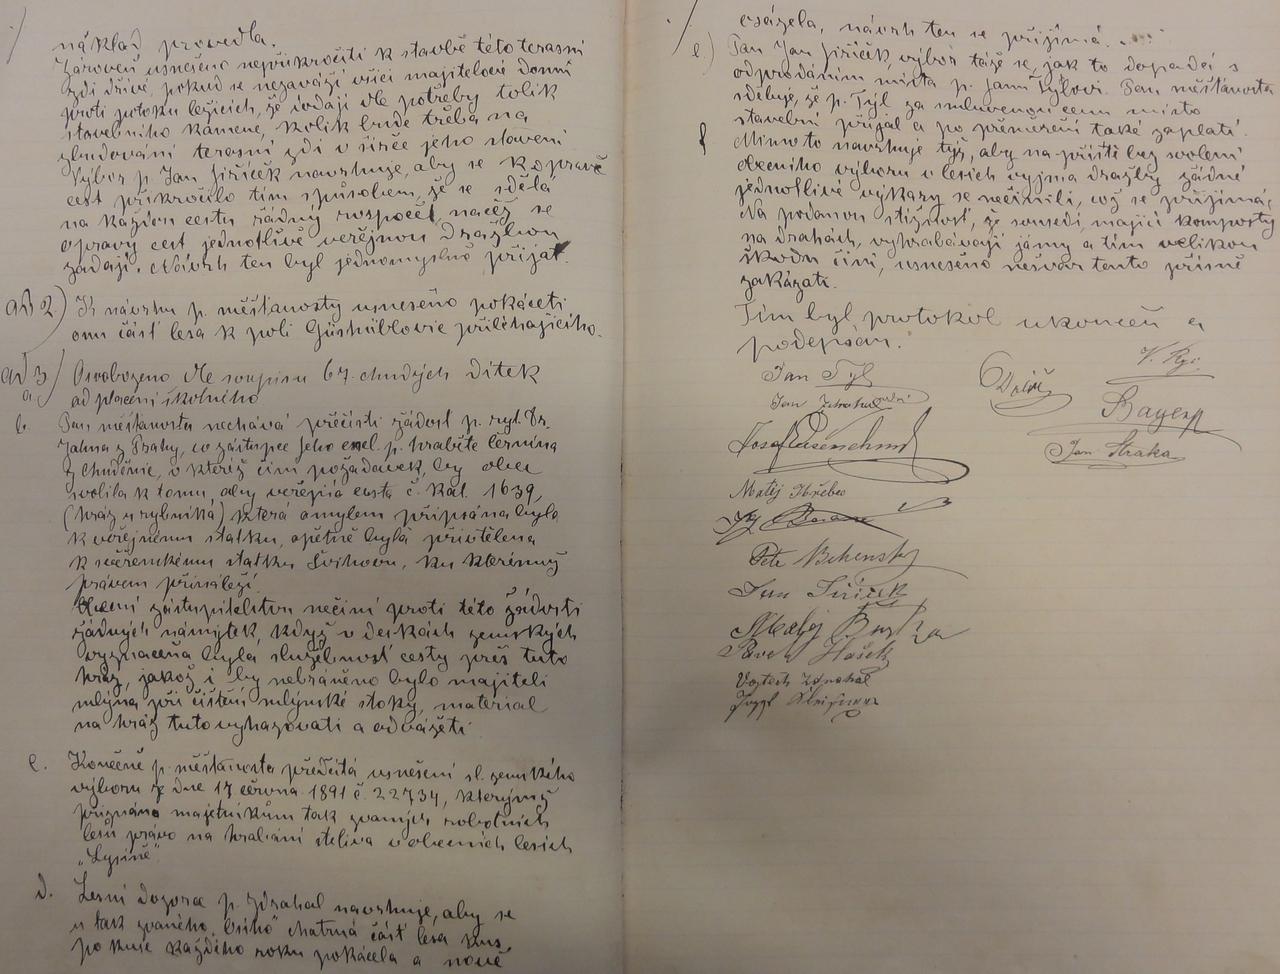 náklad provedla.
Zároveň usneseno nepřikročiti k stavbě této terasní
zdi dříve, pokud se nezaváží všici majitelové domů
proti potoku ležících, že dodají dle potřeby tolik
stavebního kamene, kolik bude třeba na
zbudování terasní zdi v šířce jeho stavení
Výbor p. Jan Jiříček navrhuje, aby se k opravě
cest přikročilo tím způsobem, že se sdělá
na každou cestu řádný rozpočet, načež se
opravy cest jednotlivě veřejnou dražbou
zadají. Návrh ten byl jednomyslně přijat.
ad 2.) K návrhu p. měšťanosty usneseno pokáceti
onu část lesa k poli přiléhajícího.
ad 3) Osvobozeno dle soupisu 67 chudých dítek
a) od placení školného
b. Pan měšťanosta nechává přečísti žádost p. ryt. Dr.
Jahna z Prahy, co zástupce Jeho excel. p. hraběte Černína
z Chudenic, v kteréž činí požadavek, by obec
svolila k tomu, aby veřejná cesta č. kat. 1639,
(hráz u rybníka) která omylem připsána byla
k veřejnému statku, opětně byla přivtělena
k svěřenskému statku Švihovu, ku kterémuž
právem přináleží.
Obecní zastupitelstvo nečiní proti této žádosti
žádných námitek, když v deskách zemských
vyznačena byla služebnost cesty přes tuto
hráz, jakož i by nebráněno bylo majiteli
mlýna při čištění mlýnské stoky, material
na hráz tuto vyhazovati a odvážeti.
c. Konečně p. měšťanosta předčítá usnešení sl. zemského
výboru ze dne 17 června 1891 č. 22734, kterýmž
přiznáno majetníkům tak zvaných robotních
lesů právo na hrabání steliva v obecních lesích
„Lysině“.
d. Lesní dozorce p. Zdrahal navrhuje, aby se
u tak zvaného chatrná část lesa kus
po kuse každého roku pokácela a nově
osázela, návrh ten se přijímá.
e) Pan Jan Jiříček, výbor táže se, jak to dopadá s
odprodáním místa p. Janu Týlovi. Pan měšťanosta
sděluje, že p. Týl za smluvenou cenu místo
stavební přijal a po přeměření také zaplatí.
f Mimo to navrhuje týž, aby na příště bez svolení
obecního výboru v lesích vyjma dražby žádné
jednotlivé výkazy se nečinili, což se přijímá,
Na podanou stížnost, že sousedi, mající komposty
na drahách, vyhrabávají jámy a tím velikou
škodu činí, usneseno nešvar tento přísně
zakázati.
Tím byl protokol ukončen a
podepsán.
Jan Týl
Jan Zdrahal
Bayer
Jan Straka
Matěj
Petr
Jan Jiříček
Matěj
Hašek
Vojtěch Zdrahal